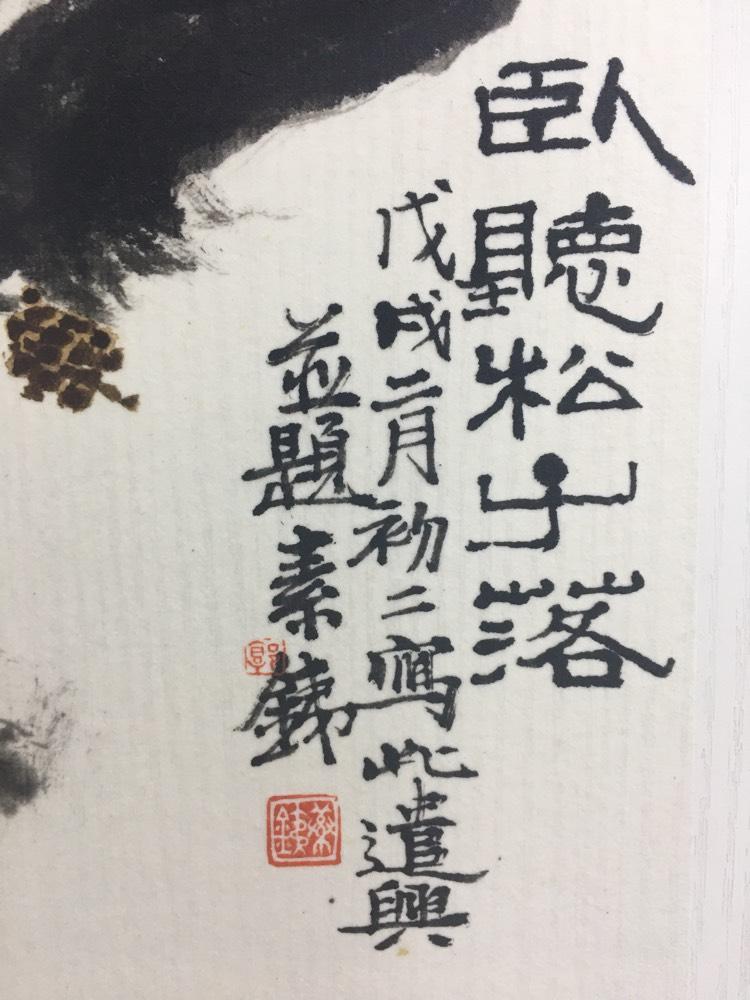 臥聽松子落
戊戌二月初二寫此遣興
並題素銕
郭
素銕